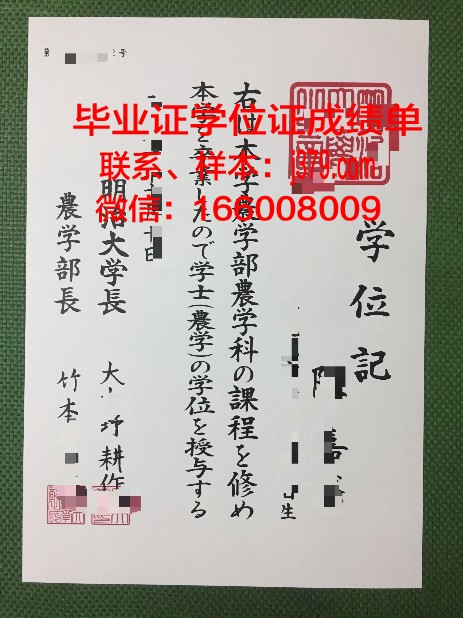 第 号
学位記
生
右は本学農学部農学科の課程を修め
本学を卒業したので学士(農学)の学位を授与する
十日
明治大学長 大 耕作
農学部長 竹本
毕业证学位证成绩单
联系、样本：j979.com
微信：166008009